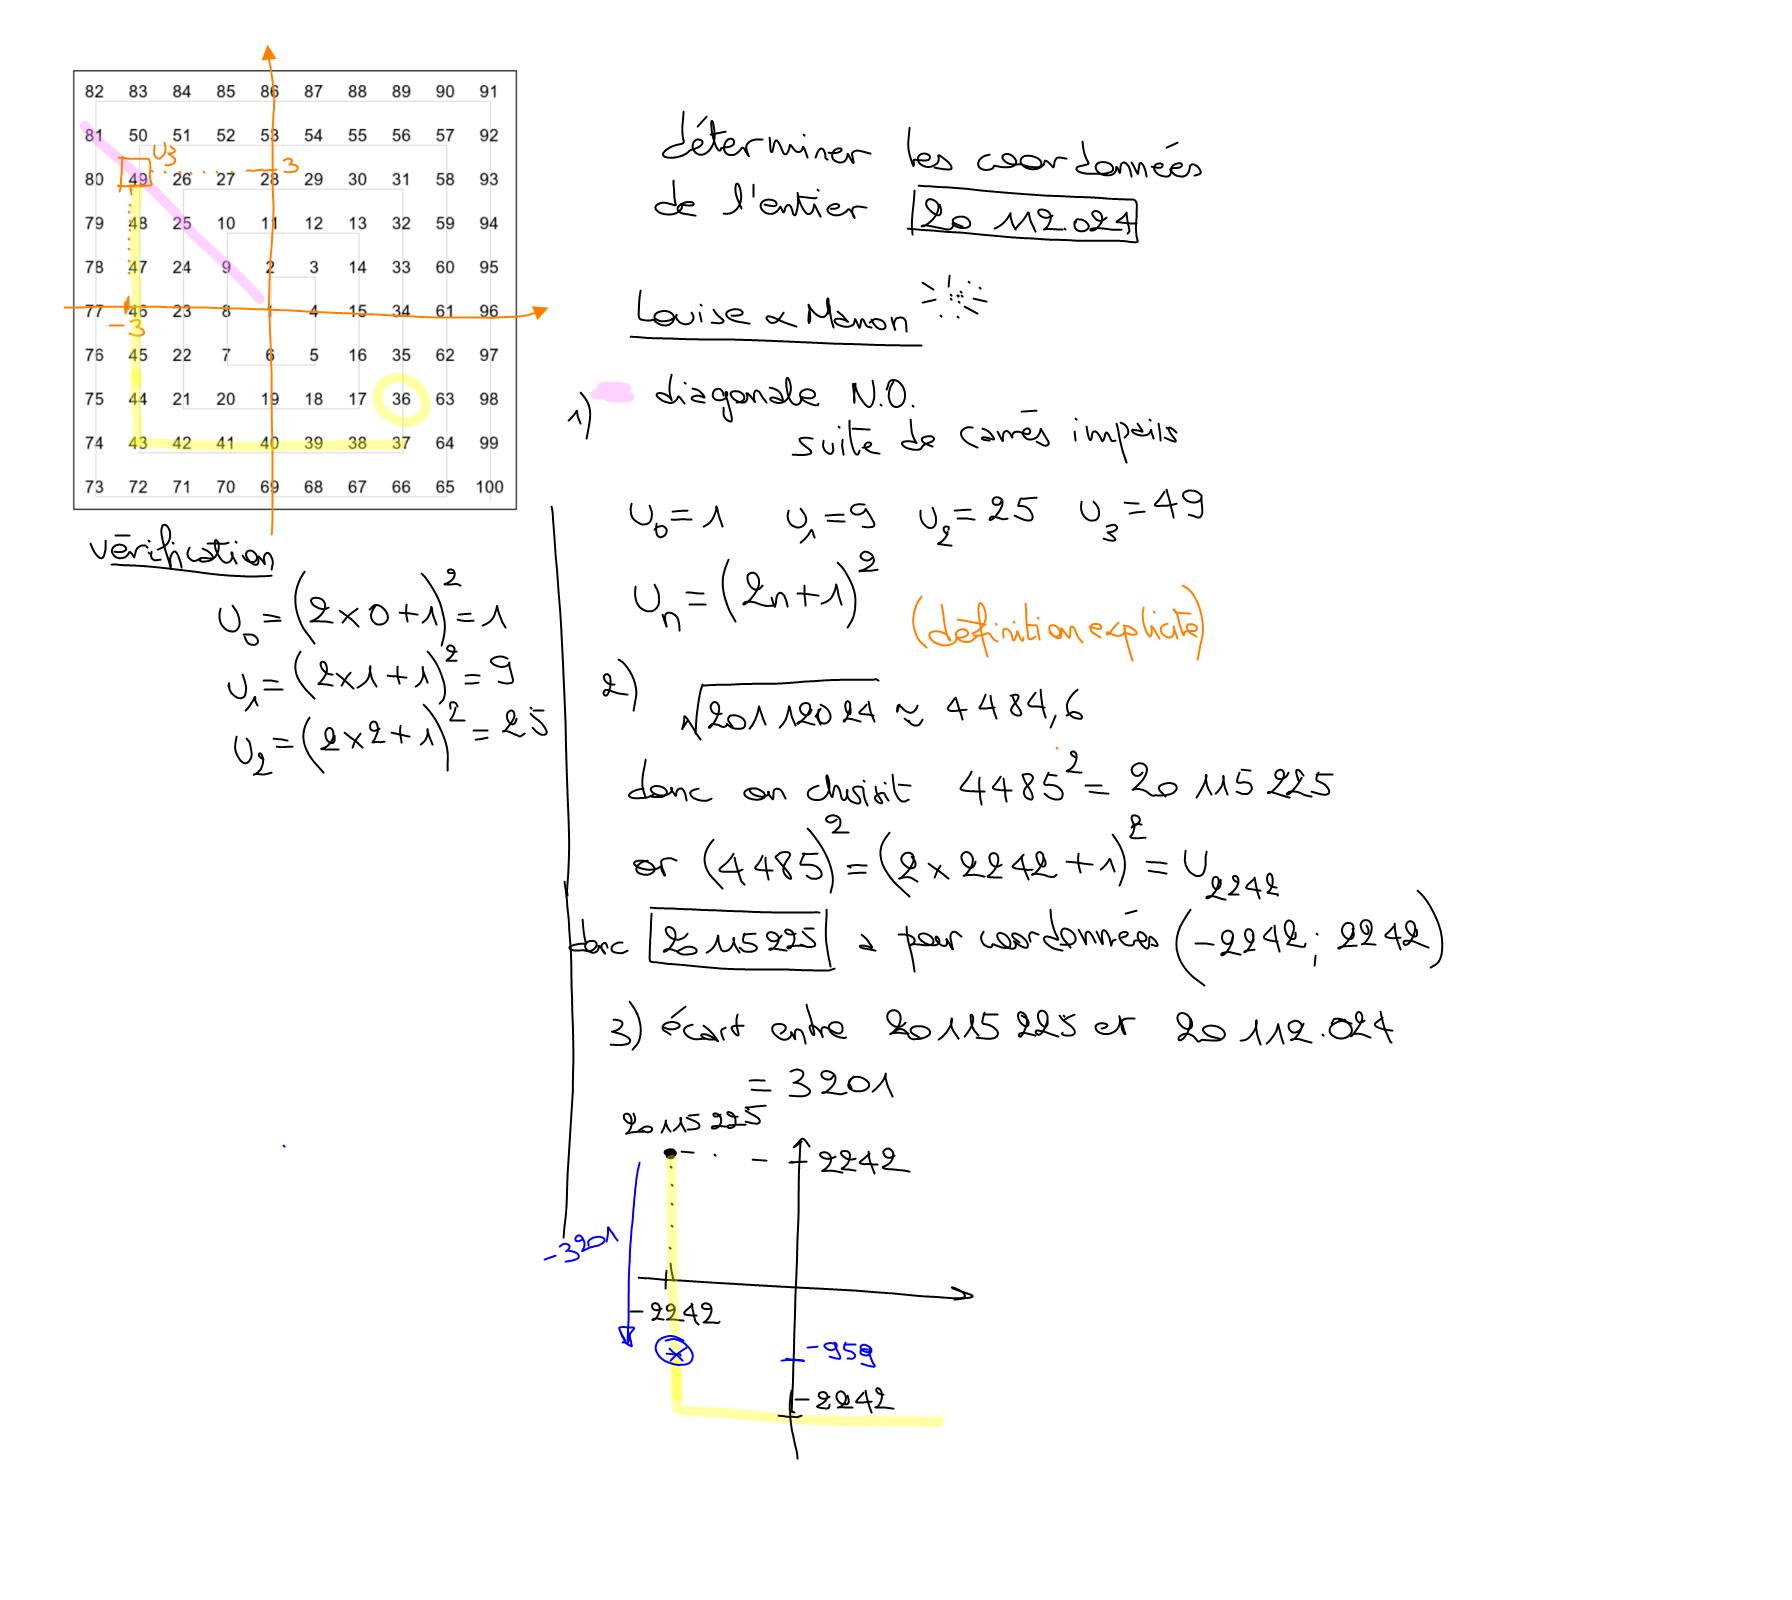 82 83 84 85 86 87 88 89 90 91
81 50 51 52 53 54 55 56 57 92
U3 3
80 49 26 27 28 29 30 31 58 93
79 48 25 10 11 12 13 32 59 94
78 47 24 9 2 3 14 33 60 95
77 46 23 8 1 4 15 34 61 96
-3
76 45 22 7 6 5 16 35 62 97
75 44 21 20 19 18 17 36 63 98
74 43 42 41 40 39 38 37 64 99
73 72 71 70 69 68 67 66 65 100
vérification
U₀ = (2×0+1)² = 1
U₁ = (2×1+1)² = 9
U₂ = (2×2+1)² = 25
déterminer les coordonnées
de l'entier 20 112.024
Louise & Manon
1) diagonale N.O.
suite de carrés impairs
U₀ = 1 U₁ = 9 U₂ = 25 U₃ = 49
Uₙ = (2n+1)²
(définition explicite)
2) √20112024 ≈ 4484,6
donc on choisit 4485² = 20 115 225
or (4485)² = (2×2242+1)² = U₂₂₄₂
donc 20 115 225 a pour coordonnées (-2242; 2242)
3) écart entre 20 115 225 et 20 112.024
= 3201
20 115 225
2242
-3201
-2242
-959
-2242